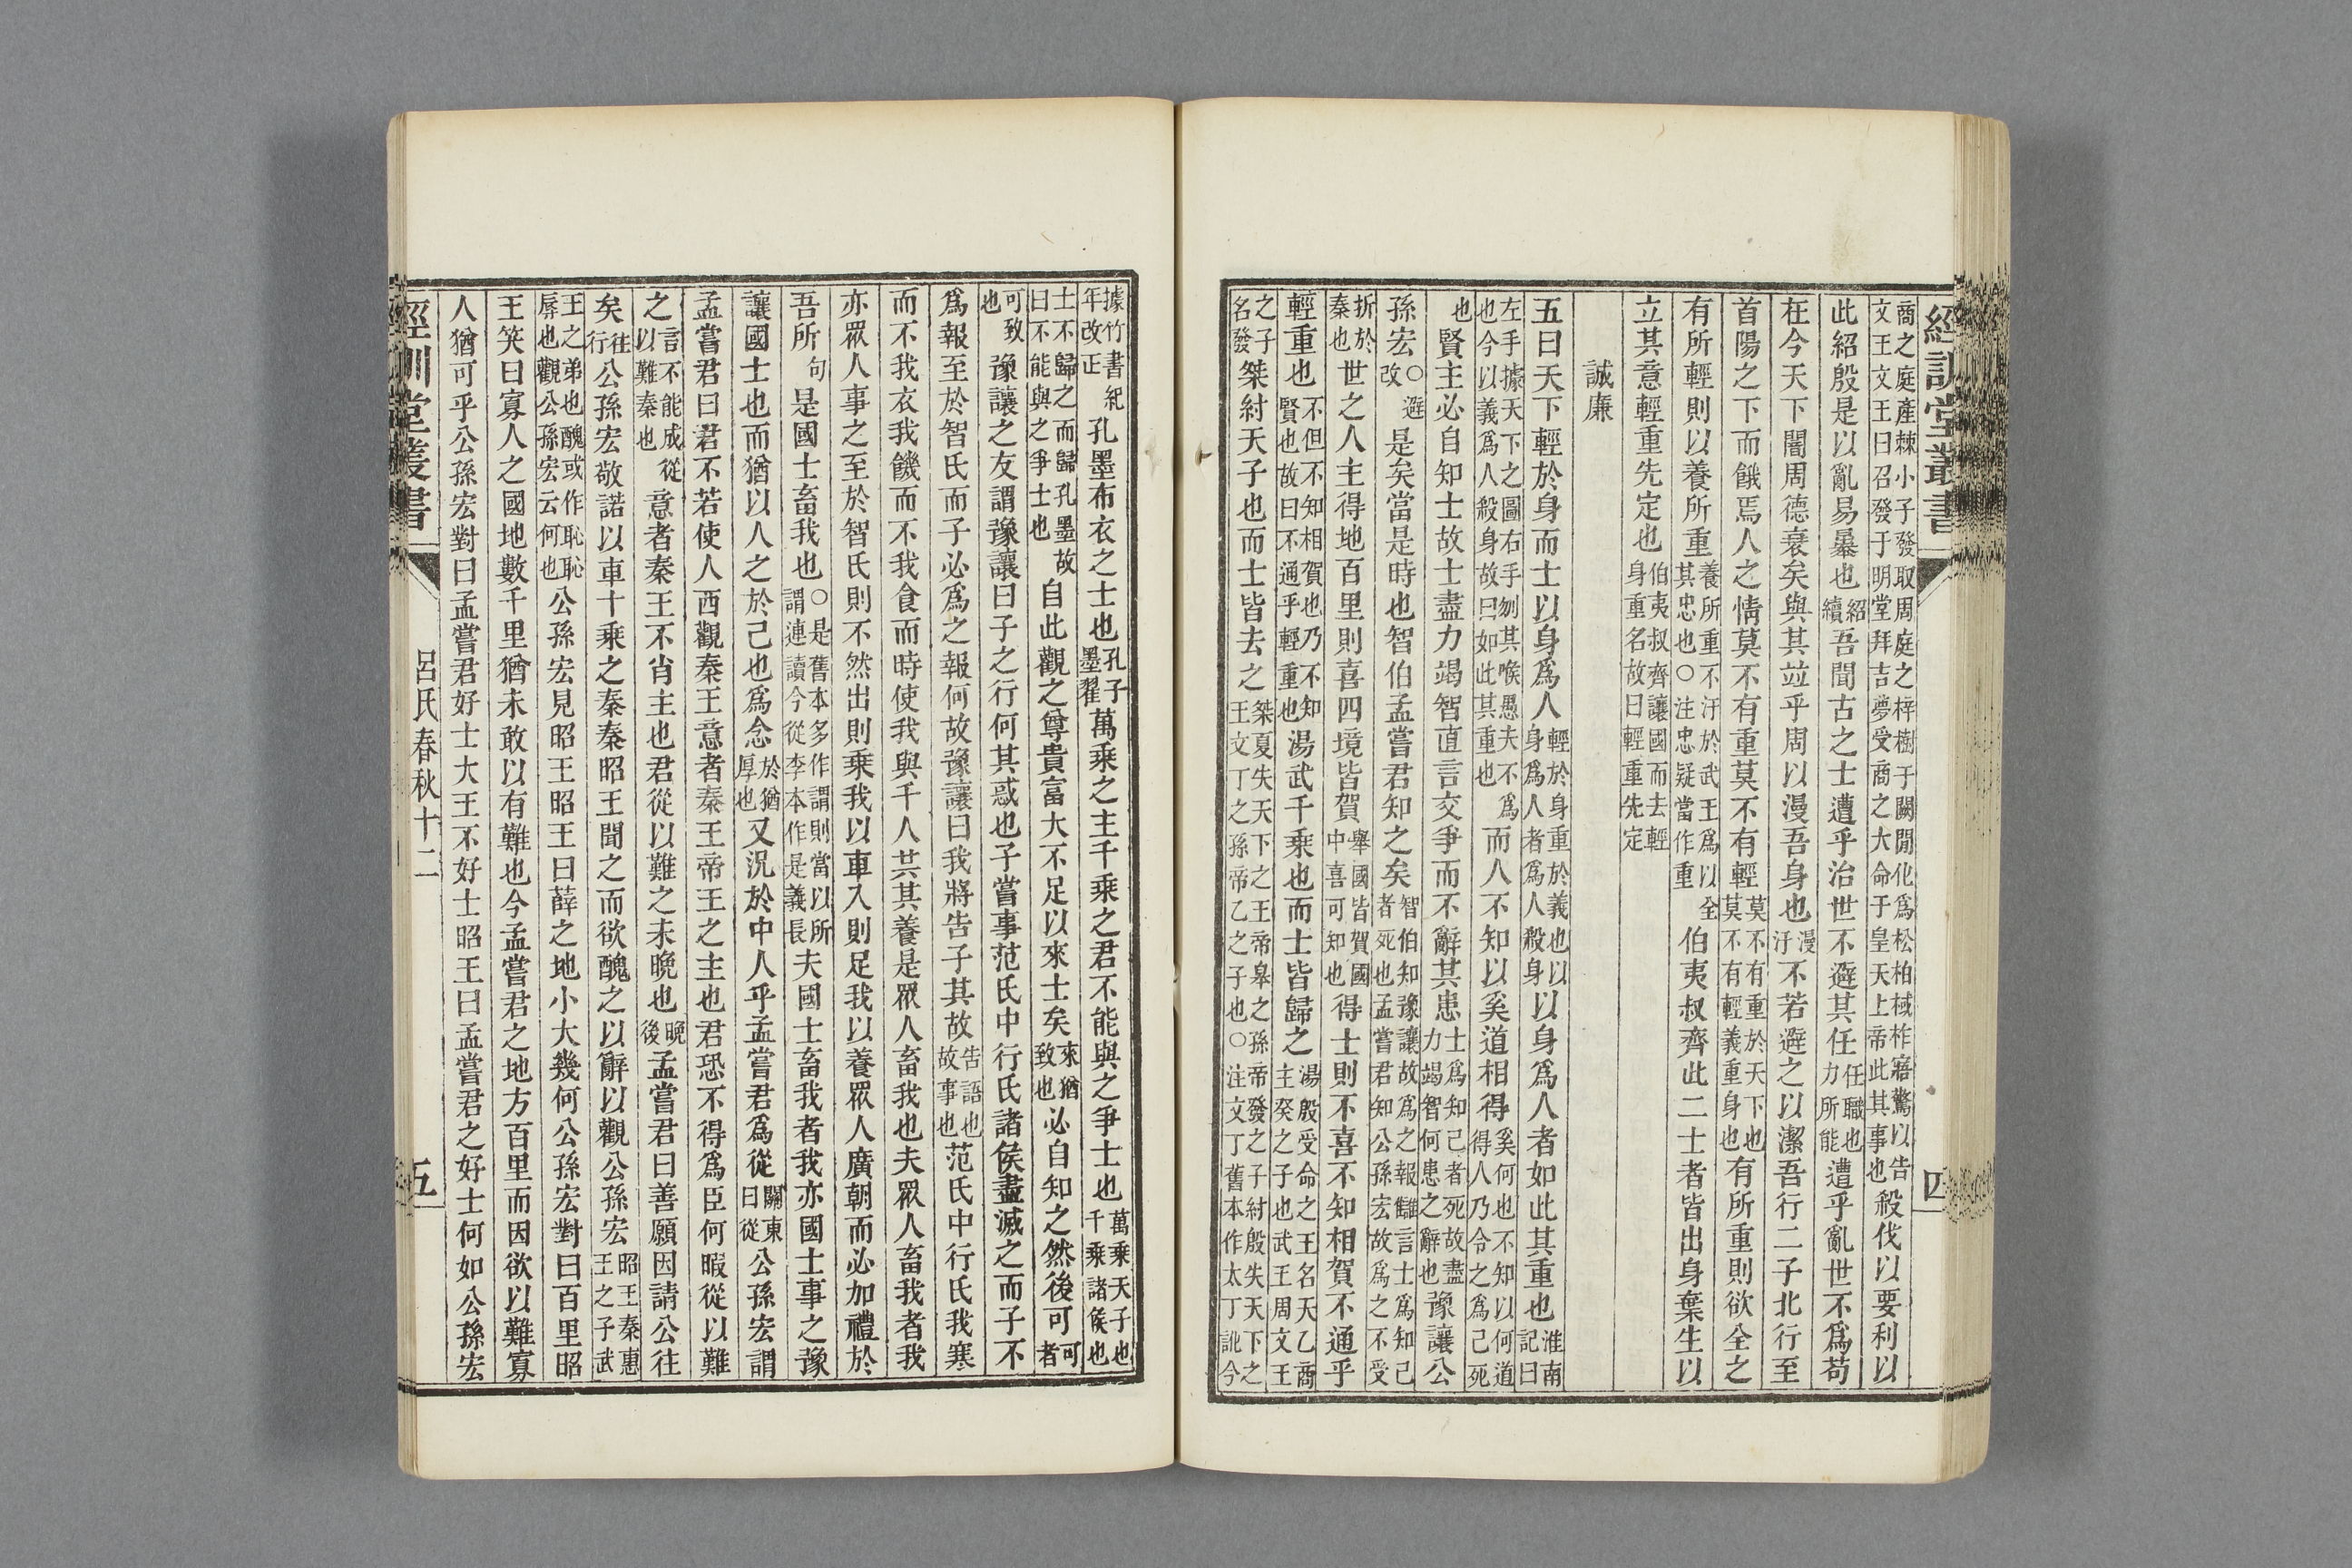 經訓堂叢書
四
商之庭產棘小子發取周庭之梓樹于闕閒化爲松柏棫柞寤驚以告
文王文王曰召發于明堂拜吉夢受商之大命于皇天上帝此其事也
殺伐以要利以
此紹殷是以亂易暴也紹續吾聞古之士遭乎治世不避其任任職也力所能也遭乎亂世不爲苟
在今天下闇周德衰矣與其竝乎周以漫吾身也漫汙不若避之以潔吾行二子北行至
首陽之下而餓焉人之情莫不有重莫不有輕莫不有重於天下也莫不有輕義重身也有所重則欲全之
有所輕則以養所重養所重不汙於武王爲以全其忠也○注忠疑當作重伯夷叔齊此二士者皆出身棄生以
立其意輕重先定也伯夷叔齊讓國而去輕身重名故曰輕重先定
誠廉
五曰天下輕於身而士以身爲人輕於身重於義也以身爲人者爲人殺身以身爲人者如此其重也淮南記曰
左手據天下之圖右手刎其喉愚夫不爲也今以義爲人殺身故曰如此其重也而人不知以奚道相得奚何也不知以何道得人乃令之爲己死
也賢主必自知士故士盡力竭智直言交爭而不辭其患士爲知己者死故盡力竭智何患之辭也豫讓公
孫宏○避改是矣當是時也智伯孟嘗君知之矣智伯知豫讓故爲之報讎言士爲知己者死也孟嘗君知公孫宏故爲之不受
折於秦也世之人主得地百里則喜四境皆賀得士則不喜不知相賀不通乎
舉國皆賀國中喜可知也
輕重也不但不知相賀也乃不知賢也故曰不通乎輕重也湯武千乘也而士皆歸之湯殷受命之王名天乙商主癸之子也武王周文王
之子名發桀紂天子也而士皆去之桀夏失天下之王帝皋之孫帝發之子紂殷失天下之王文丁之孫帝乙之子也○注文丁舊本作太丁訛今
據竹書紀年改正孔墨布衣之士也孔子墨翟萬乘之主千乘之君不能與之爭士也萬乘天子也千乘諸侯也
士不歸之而歸孔墨故曰不能與之爭士也自此觀之尊貴富大不足以來士矣來猶致也必自知之然後可可者
可致也豫讓之友謂豫讓曰子之行何其惑也子嘗事范氏中行氏諸侯盡滅之而子不
爲報至於智氏而子必爲之報何故豫讓曰我將告子其故告語也故事也范氏中行氏我寒
而不我衣我饑而不我食而時使我與千人共其養是眾人畜我也夫眾人畜我者我
亦眾人事之至於智氏則不然出則乘我以車入則足我以養眾人廣朝而必加禮於
吾所句是國士畜我也○是舊本多作謂則當以所謂連讀今從李本作是義長夫國士畜我者我亦國士事之豫
讓國士也而猶以人之於己也爲念於猶厚也又況於中人乎孟嘗君爲從關東曰從公孫宏謂
孟嘗君曰君不若使人西觀秦王意者秦王帝王之主也君恐不得爲臣何暇從以難
之言不能成從以難秦也意者秦王不肖主也君從以難之未晚也晚後孟嘗君曰善願因請公往
矣往行公孫宏敬諾以車十乘之秦秦昭王聞之而欲醜之以辭以觀公孫宏昭王秦惠王之子武
王之弟也醜或作恥恥辱也觀公孫宏云何也公孫宏見昭王昭王曰薛之地小大幾何公孫宏對曰百里昭
王笑曰寡人之國地數千里猶未敢以有難也今孟嘗君之地方百里而因欲以難寡
人猶可乎公孫宏對曰孟嘗君好士大王不好士昭王曰孟嘗君之好士何如公孫宏
經訓堂叢書
呂氏春秋十二
五